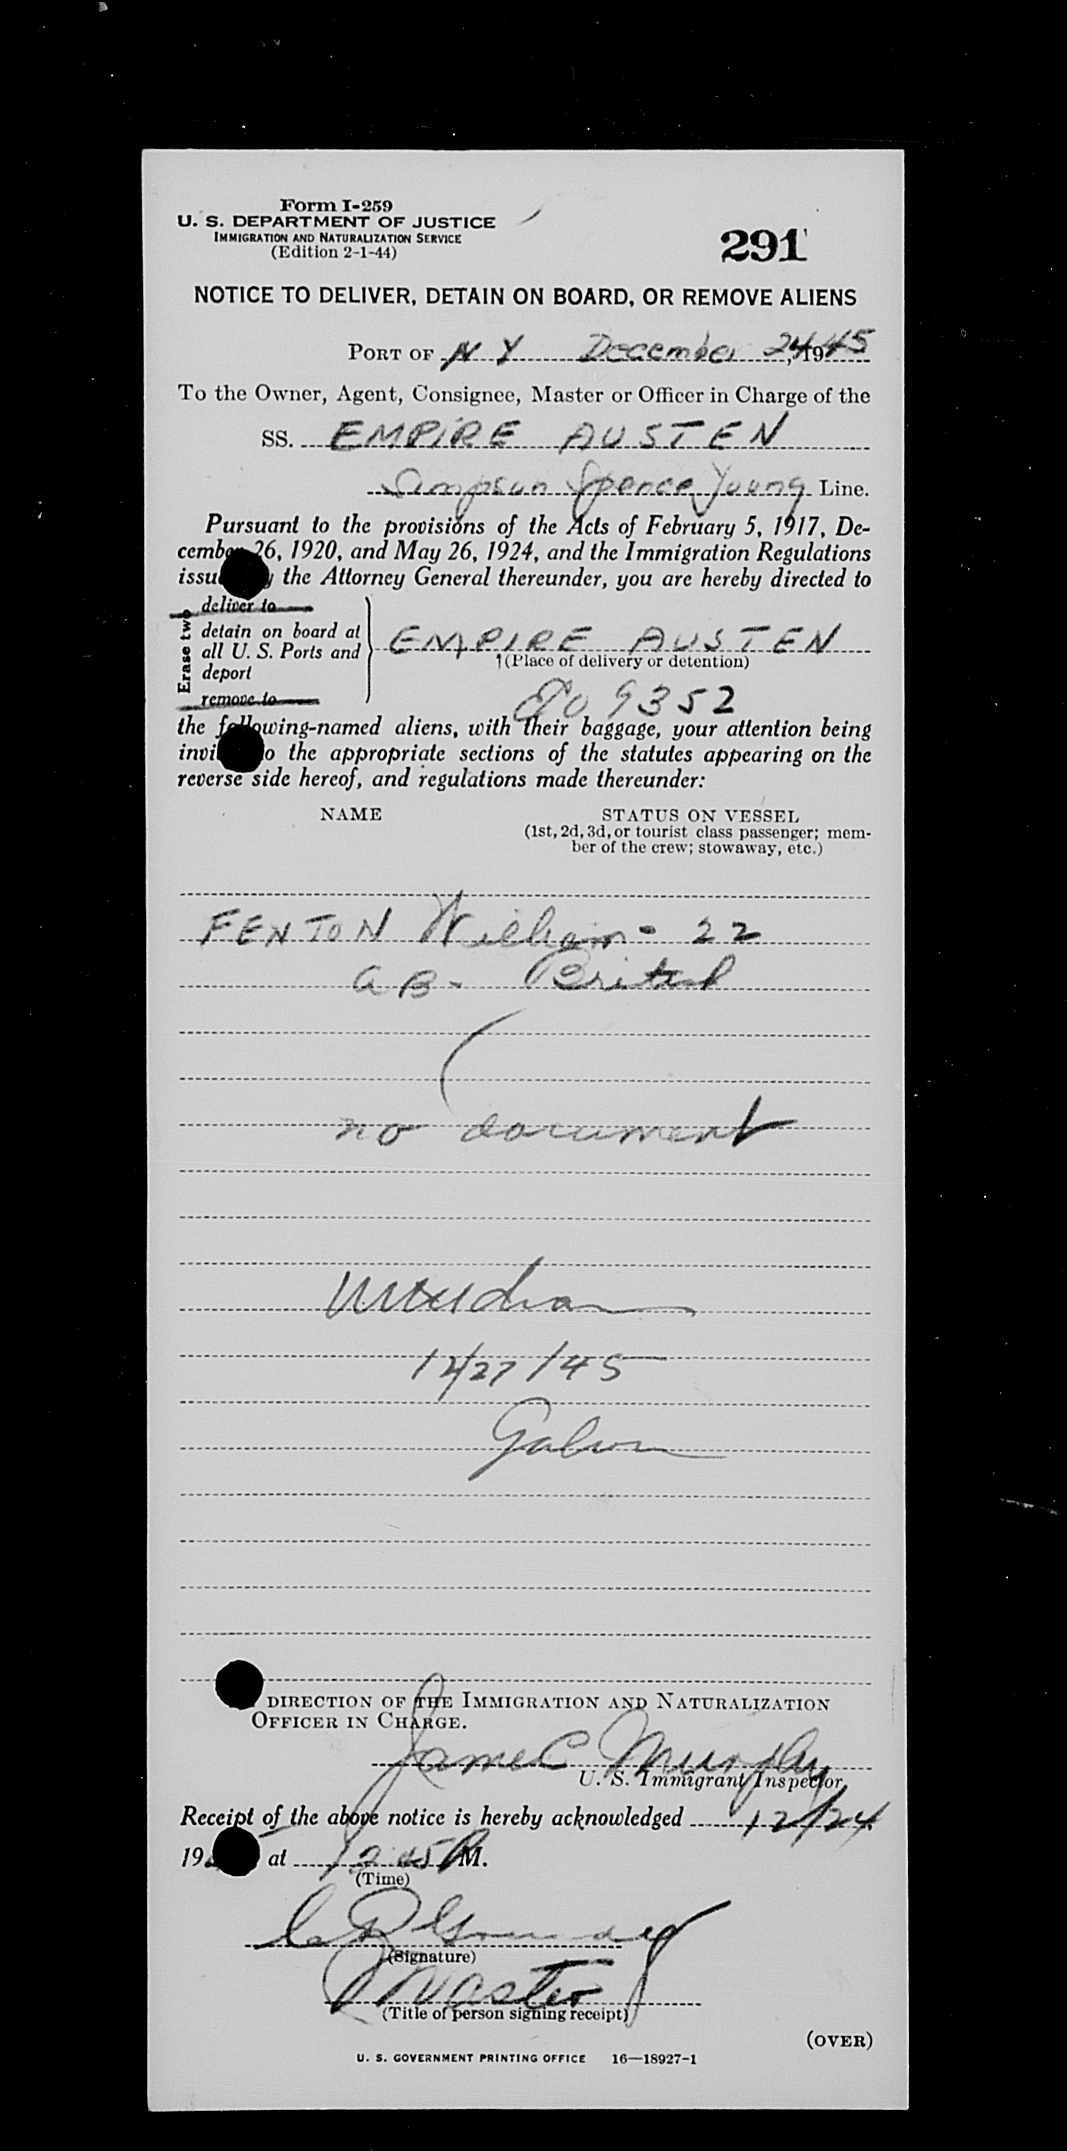 Form I-259
U. S. DEPARTMENT OF JUSTICE
IMMIGRATION AND NATURALIZATION SERVICE
(Edition 2-1-44)
291
NOTICE TO DELIVER, DETAIN ON BOARD, OR REMOVE ALIENS
PORT OF N Y December 24, 1945
To the Owner, Agent, Consignee, Master or Officer in Charge of the
SS. EMPIRE AUSTEN
Simpson Spence Young Line.
Pursuant to the provisions of the Acts of February 5, 1917, De-
cember 26, 1920, and May 26, 1924, and the Immigration Regulations
issu the Attorney General thereunder, you are hereby directed to
Erase two
deliver to
detain on board at
all U. S. Ports and
deport
remove to
EMPIRE AUSTEN
(Place of delivery or detention)
9352
the following-named aliens, with their baggage, your attention being
invi to the appropriate sections of the statutes appearing on the
reverse side hereof, and regulations made thereunder:
NAME
STATUS ON VESSEL
(1st, 2d, 3d, or tourist class passenger; mem-
ber of the crew; stowaway, etc.)
FENTON William - 22
AB - British
no document
12/27/45
DIRECTION OF THE IMMIGRATION AND NATURALIZATION
OFFICER IN CHARGE.
James C Murphy
U. S. Immigrant Inspector,
Receipt of the above notice is hereby acknowledged 12/24
19 at 12:45 P M.
(Time)
(Signature)
Master
(Title of person signing receipt)
(OVER)
U. S. GOVERNMENT PRINTING OFFICE 16—18927-1